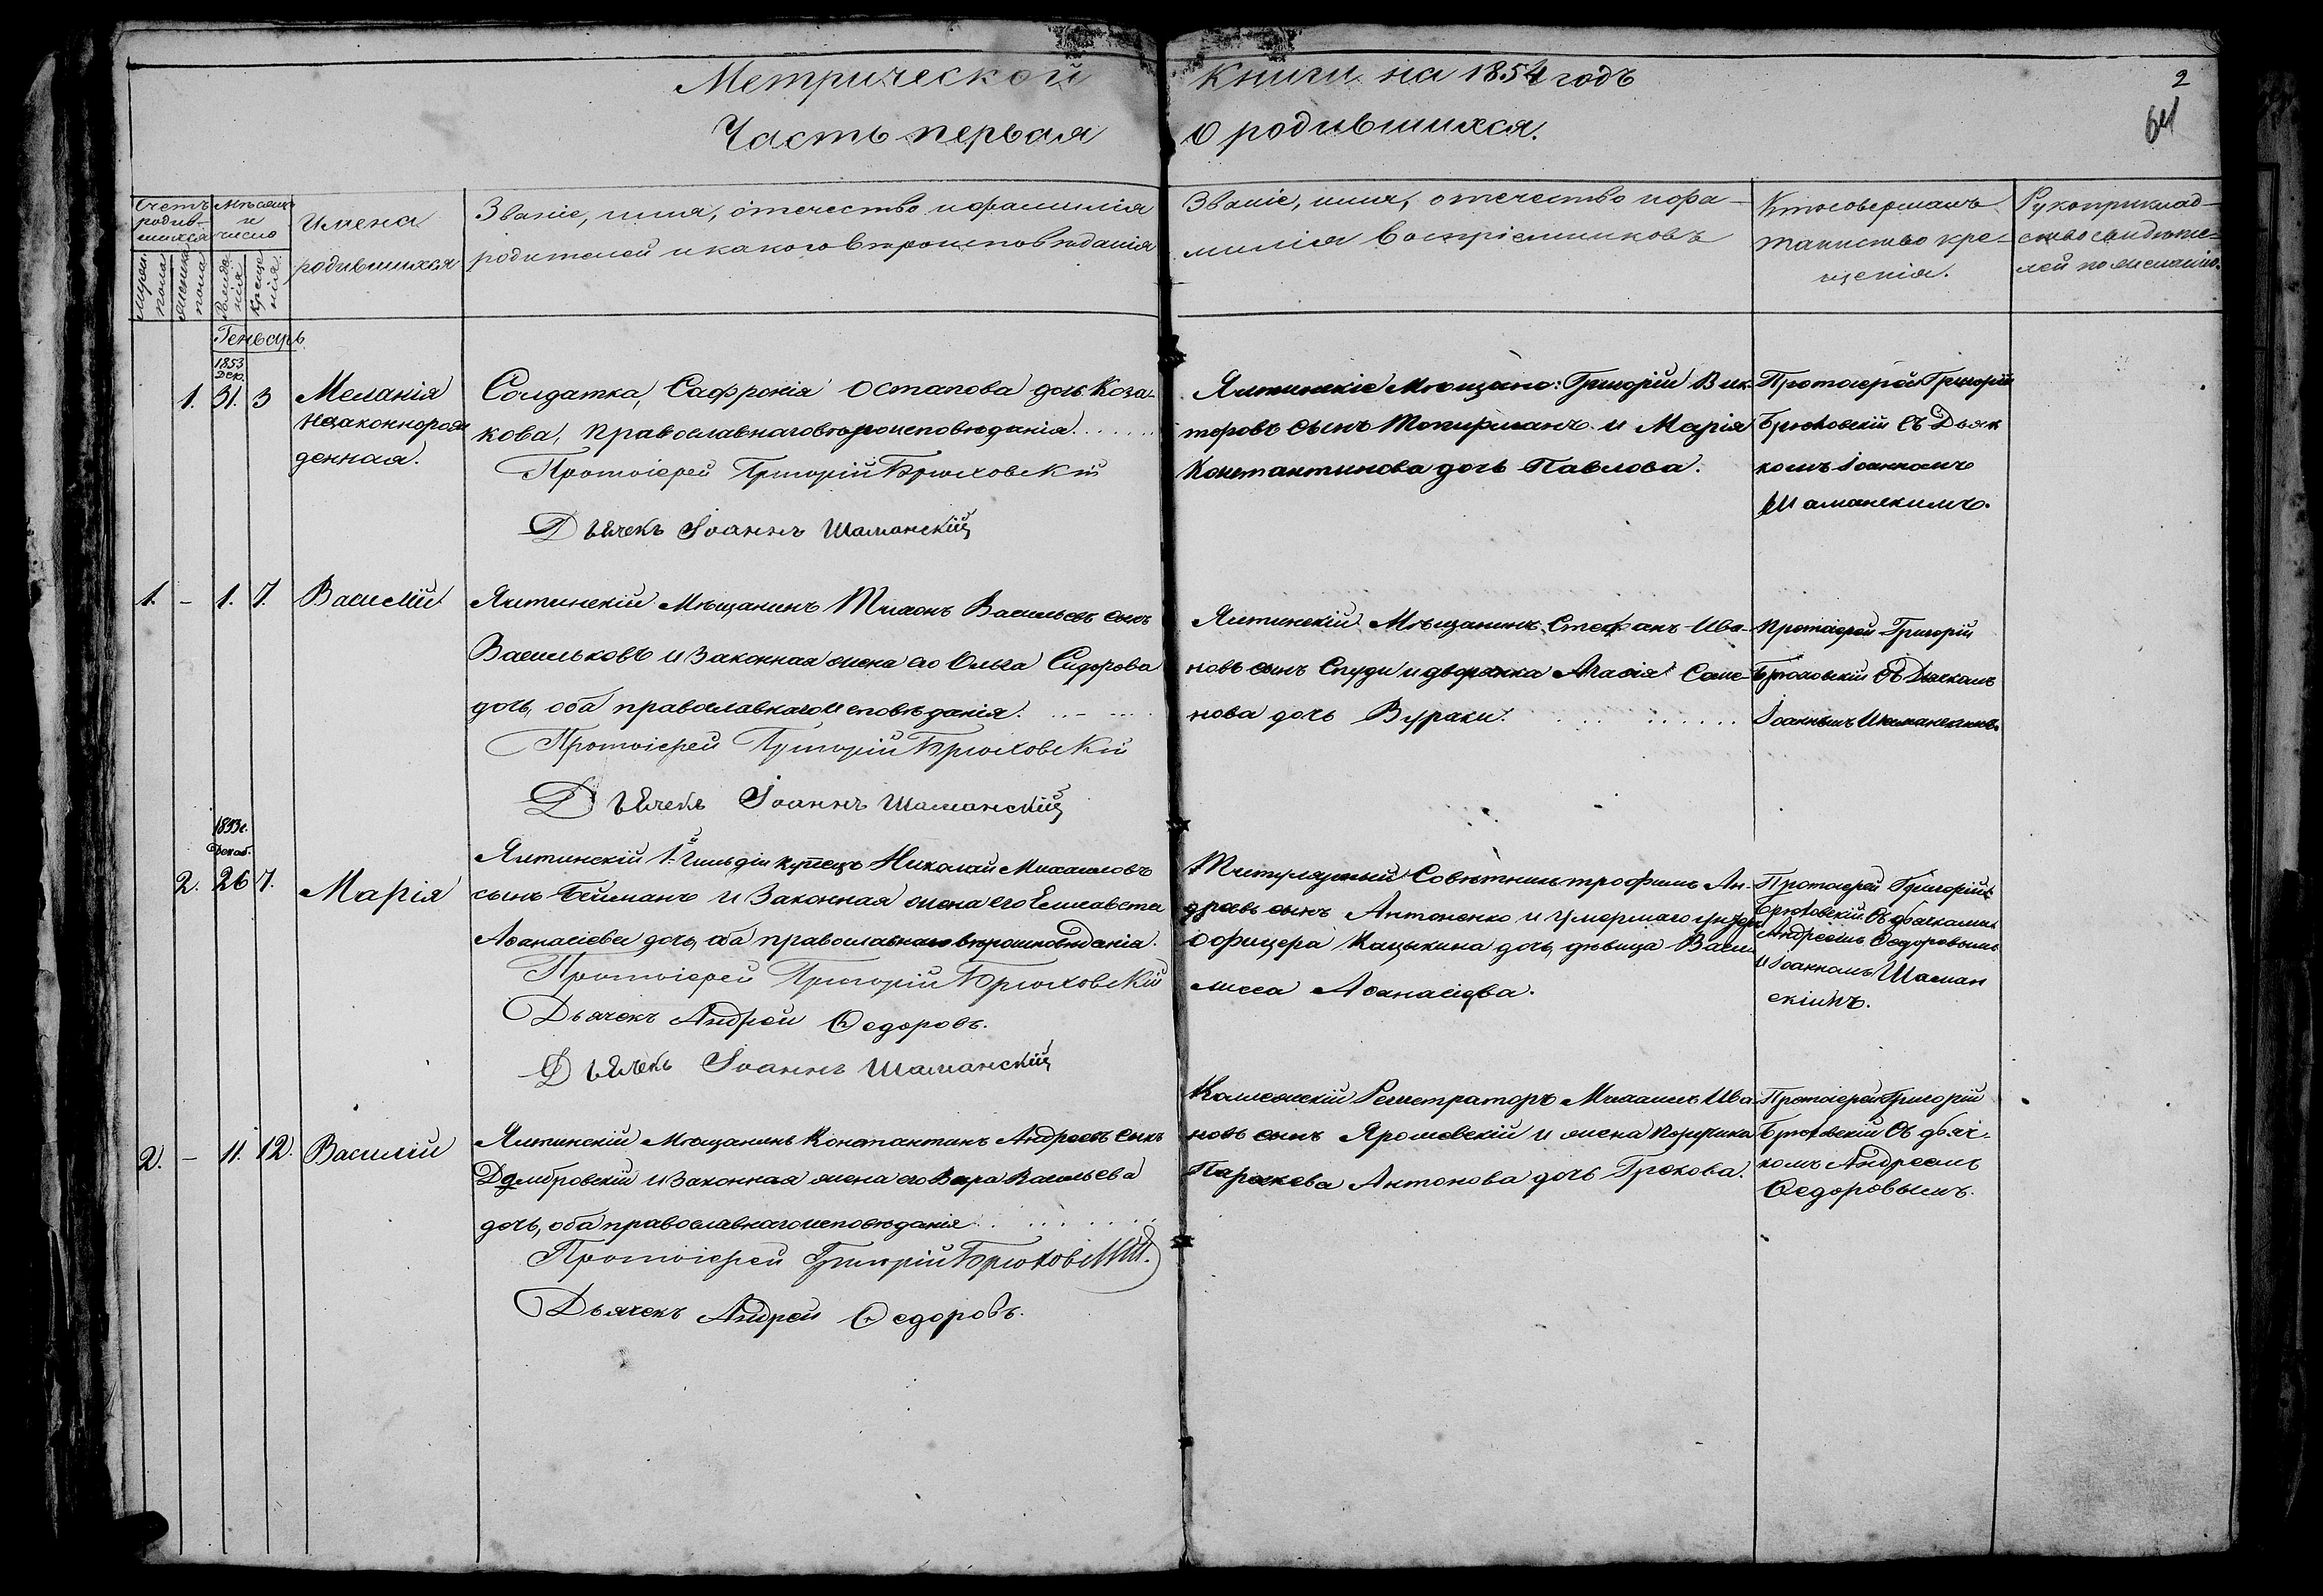 Метрической Книги на 1854 годъ
2
Часть первая О родившихся.
64
Счетъ родив-шихся
Мѣсяцъ и число
Имена родившихся
Званіе, имя, отечество и фамилія
родителей и какого вѣроисповѣданія
Званіе, имя, отечество и фа-
милія воспріемниковъ
Кто совершалъ
таинство кре-
щенія.
Рукоприклад-
ство свидѣте-
лей по желанію.
мужеск. пола
женска пола
рожде нія
Креще нія.
Генварь
1853 Дек.
1. 31. 3
Меланія
незаконнорож
денная.
Солдатка, Сафронія Остапова дочь Коза-
кова, православнаго вѣроисповѣданія.
Протоіерей Григорій Брюховскій
Дьячекъ Іоаннъ Шаманскій
Ялтинскіе Мѣщане: Григорій Вик-
торовъ сынъ и Марія
Константинова дочь Павлова.
Протоіерей Григорій
Брюховскій съ Дьяч
комъ Іоанномъ
Шаманскимъ.
1. – 1. 7. Василій
Ялтинскій Мѣщанинъ Тихонъ Васильевъ сынъ
Васильковъ и Законная жена его Ольга Сидорова
дочь, оба православнаго исповѣданія.
Протоіерей Григорій Брюховскій
Дьячекъ Іоаннъ Шаманскій
Ялтинскій Мѣщанинъ Стефанъ Ива-
новъ сынъ Спуди и дворянка Семе-
нова дочь Вураки.
Протоіерей Григорій
Брюховскій съ Дьячкомъ
Іоанномъ Шаманскимъ.
1853 г.
Декаб.
2. 26 7. Марія
Ялтинскій 1-й Гильдіи купецъ Николай Михаиловъ
сынъ Гейманъ и Законная жена его Елисавета
Аѳанасіева дочь, оба православнаго вѣроисповѣданія.
Протоіерей Григорій Брюховскій
Дьячекъ Андрей Ѳедоровъ.
Дьячекъ Іоаннъ Шаманскій
Титулярный Совѣтникъ трофимъ Ан-
дреевъ сынъ Антоненко и умершаго унтеръ
офицера Кацыкина дочь, дѣвица Васи
лисса Аѳанасіева.
Протоіерей Григорій
Брюховскій съ дьячками
Андреемъ Ѳедоровымъ
и Іоанномъ Шаман
скимъ.
2. – 11. 12. Василій
Ялтинскій Мѣщанинъ Константинъ Андреевъ сынъ
Домбровскій и Законная жена его Вера Васильева
дочь, оба православнаго исповѣданія
Протоіерей Григорій Брюховскій.
Дьячекъ Андрей Ѳедоровъ.
Коллежскій Регистраторъ Михаилъ Ива
новъ сынъ Ярошевскій и жена поручика
Параскева Антонова дочь Грекова.
Протоіерей Григорій
Брюховскій съ дьяч-
комъ Андреемъ
Ѳедоровымъ.